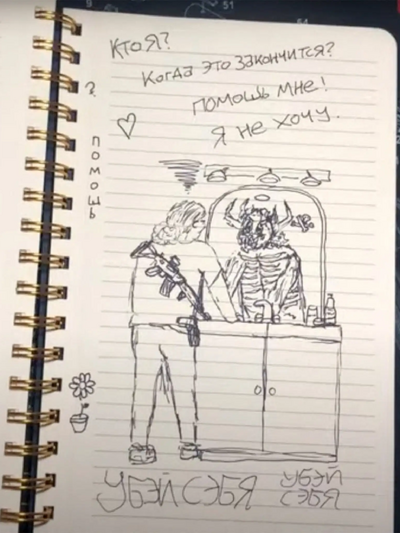 КТО Я?
КОГДА ЭТО ЗАКОНЧИТСЯ?
ПОМОШЬ МНЕ!
Я НЕ ХОЧУ.
?
ПОМОШЬ
УБЭЙ СЭБЯ
УБЭЙ
СЭБЯ